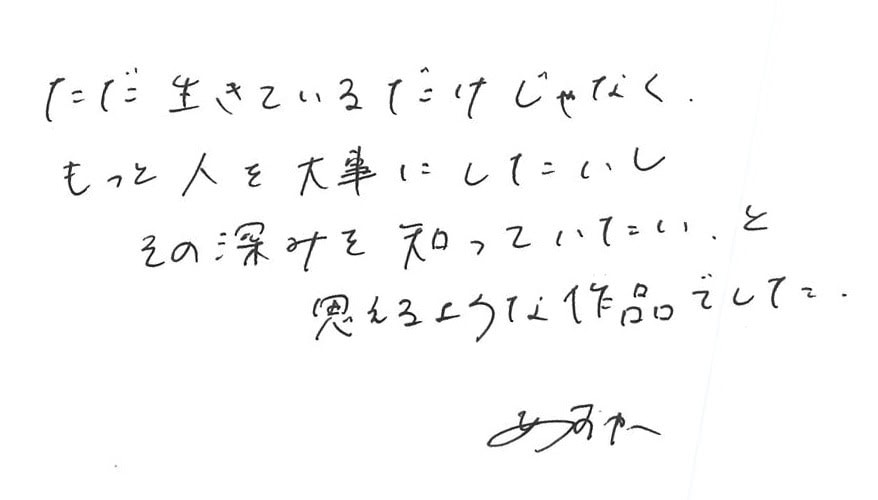 ただ生きているだけじゃなく.
もっと人を大事にしたいし
その深みを知っていたい.と
思えるような作品でした.